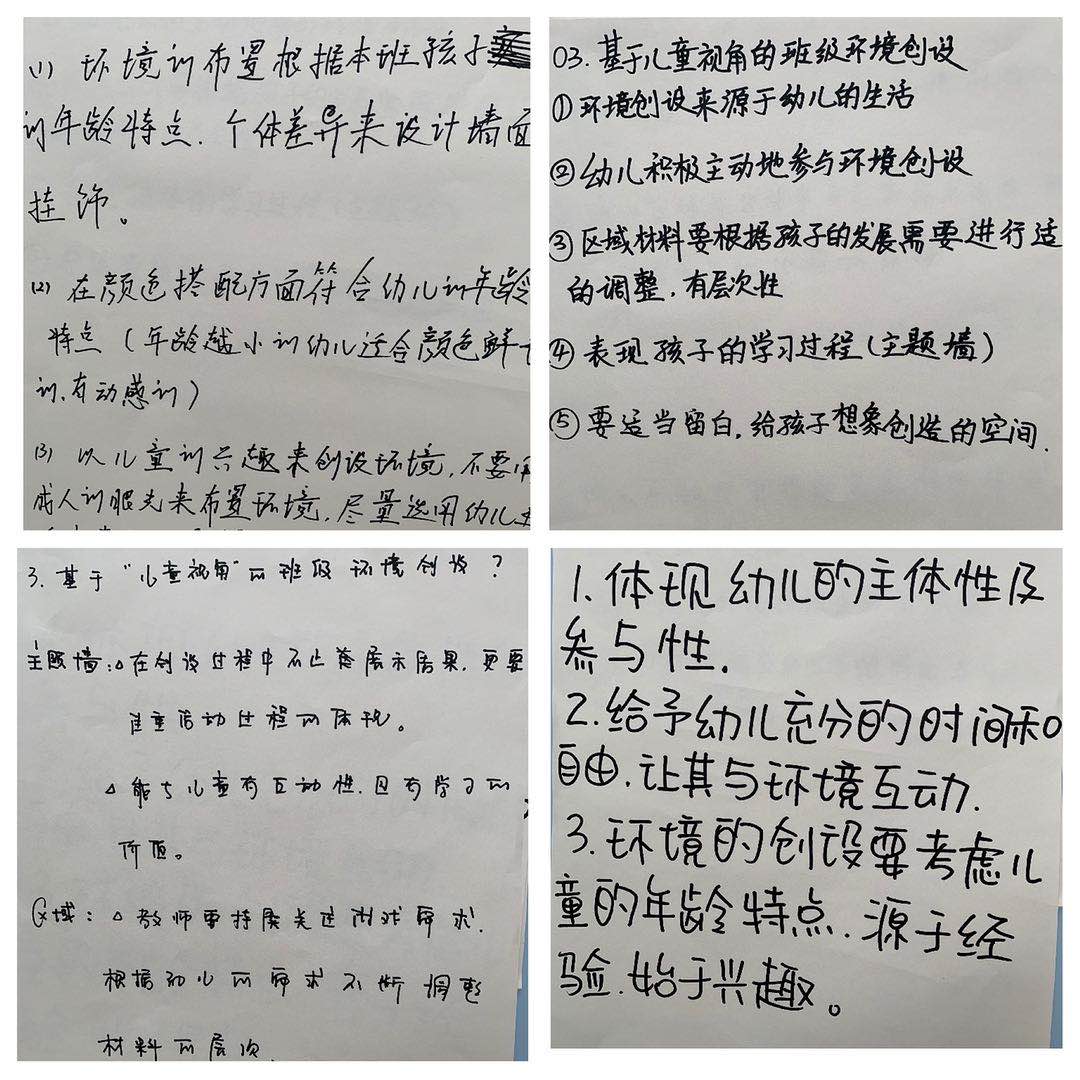 (1) 环境的布置根据本班孩子
的年龄特点.个体差异来设计墙面
挂饰。
(2) 在颜色搭配方面符合幼儿的年龄
特点（年龄越小的幼儿适合颜色鲜
的.有动感的）
(3) 以儿童的兴趣来创设环境,不要用
成人的眼光来布置环境,尽量选用幼儿
03.基于儿童视角的班级环境创设
①环境创设来源于幼儿的生活
②幼儿积极主动地参与环境创设
③区域材料要根据孩子的发展需要进行适
的调整,有层次性
④表现孩子的学习过程(主题墙)
⑤要适当留白,给孩子想象创造的空间.
3.基于“儿童视角”的班级环境创设？
主题墙:△在创设过程中不止等展示结果,更要
注重活动过程的体现。
△能与儿童有互动性,且有学习的
价值。
区域:△教师要持续关注游戏需求.
根据幼儿的需求不断调整
材料的层次
1.体现幼儿的主体性及
参与性.
2.给予幼儿充分的时间和
自由.让其与环境互动.
3.环境的创设要考虑儿
童的年龄特点.源于经
验.始于兴趣。